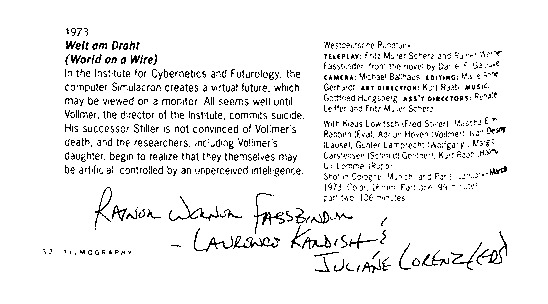 1973
Welt am Draht
(World on a Wire)
In the Institute for Cybernetics and Futurology, the
computer Simulacron creates a virtual future, which
may be viewed on a monitor. All seems well until
Vollmer, the director of the Institute, commits suicide.
His successor Stiller is not convinced of Vollmer's
death, and the researchers, including Vollmer's
daughter, begin to realize that they themselves may
be artificial, controlled by an unperceived intelligence.
Westdeutsche Rundfunk
TELEPLAY: Fritz Müller-Scherz and Rainer Werner
Fassbinder, from the novel by Daniel F. Galouye
CAMERA: Michael Ballhaus EDITING: Marie Anne
Gerhardt ART DIRECTOR: Kurt Raab MUSIC:
Gottfried Hüngsberg ASS'T DIRECTORS: Renate
Leiffer and Fritz Müller-Scherz
With Klaus Löwitsch (Fred Stiller), Mascha
Rabben (Eva), Adrian Hoven (Vollmer), Ivan Desny
(Lause), Günter Lamprecht (Wolfgang), Margit
Carstensen (Schmidt-Gentner), Kurt Raab
Ulli Lommel (Rupp)
Shot in Cologne, Munich, and Paris, January–March
1973. Color, 16mm. Part one, 99 minutes
part two, 106 minutes
Rainer Werner Fassbinder
– Laurence Kardish &
Juliane Lorenz (eds)
52 FILMOGRAPHY